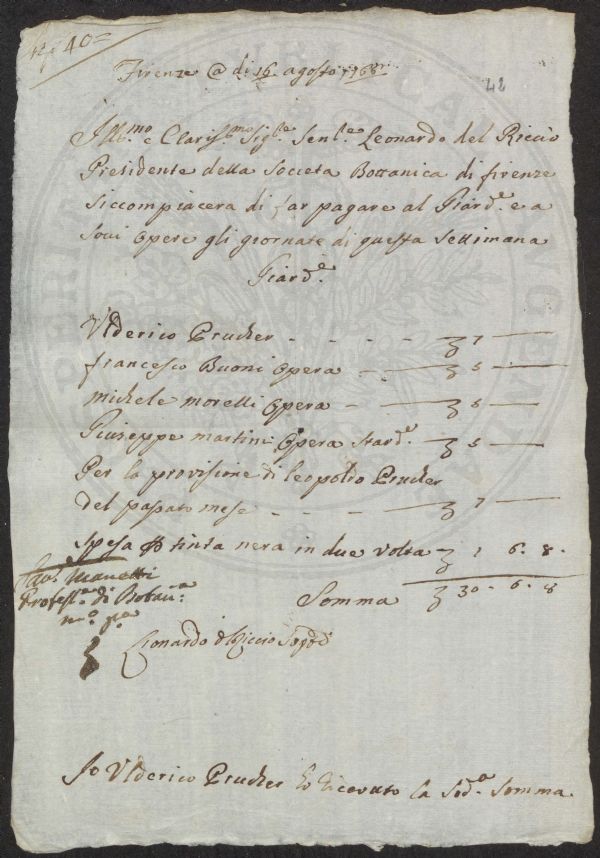 N.º 40=
Firenze @ di 16 agosto 1766
42
Ill.mo e Claris.mo Sig.re Sen.re Leonardo del Riccio
Presidente della Societa Bottanica di firenze
Siccompiacera di far pagare al Giard.e e a
Suui opere gli giornate di questa Settimana
Giard.e
Vlderico Prucker - - - - - 7 —
francesco Buoni Opera - - 5 —
michele morelli opera - - 5 —
Giuseppe martini Opera Giard.e - 5 —
Per la provisione di leopoldo Prucker
del passato mese - - - - 7 —
Spesa tinta nera in due volta - 1. 6. 8.
Manetti
Profess.e di Botan.a
m.o p.a
Somma 30. 6. 8
Lionardo d Riccio
Io Vlderico Prucker ho ricevuto la Sod.a Somma